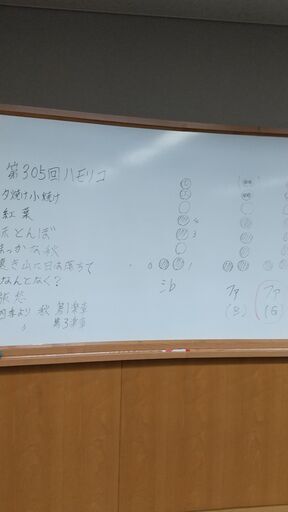 第305回ハモリコ
夕焼け小焼け
紅葉
赤とんぼ
まっかな秋
遠き山に日は落ちて
なんとなく?
旅愁
四季より 秋 第1楽章
第3楽章
シb
ファ
(B)
ファ
(G